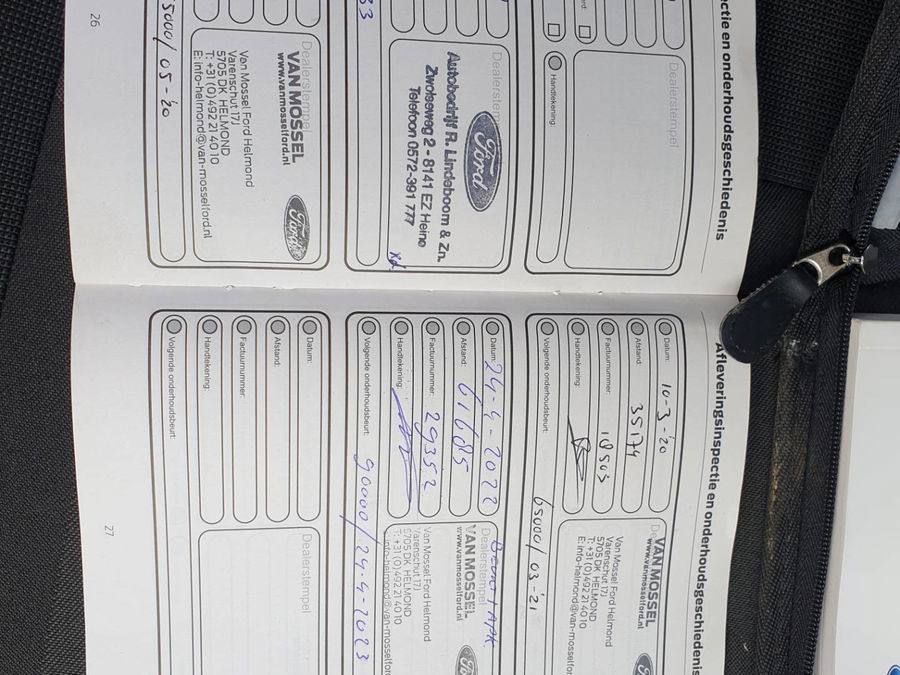 ectie en onderhoudsgeschiedenis
Dealerstempel
Handtekening:
Dealerstempel
Ford
Autobedrijf R. Lindeboom & Zn.
Zwolseweg 2 - 8141 EZ Heino
Telefoon 0572-391 777
33
Dealerstempel
VAN MOSSEL
www.vanmosselford.nl
Ford
Van Mossel Ford Helmond
Varenschut 17j
5705 DK HELMOND
T: +31 (0)492 21 40 10
E: info-helmond@van-mosselford.nl
5000/05-'20
26
Afleveringsinspectie en onderhoudsgeschiedenis
Datum: 10-3-'20
Afstand: 35174
Factuurnummer: 18503
Handtekening:
Volgende onderhoudsbeurt: 65000/03-'21
VAN MOSSEL
www.vanmosselford.nl
Van Mossel Ford Helmond
Varenschut 17j
5705 DK HELMOND
T: +31 (0)492 21 40 10
E: info-helmond@van-mosself
Datum: 24-4-2022
Afstand: 61685
Factuurnummer: 29352
Handtekening:
Volgende onderhoudsbeurt: 90000/24-4-2023
Dealerstempel
VAN MOSSEL
www.vanmosselford.nl
Van Mossel Ford Helmond
Varenschut 17j
5705 DK HELMOND
T: +31 (0)492 21 40 10
info-helmond@van-mosselfor
Datum:
Afstand:
Factuurnummer:
Handtekening:
Volgende onderhoudsbeurt:
Dealerstempel
27